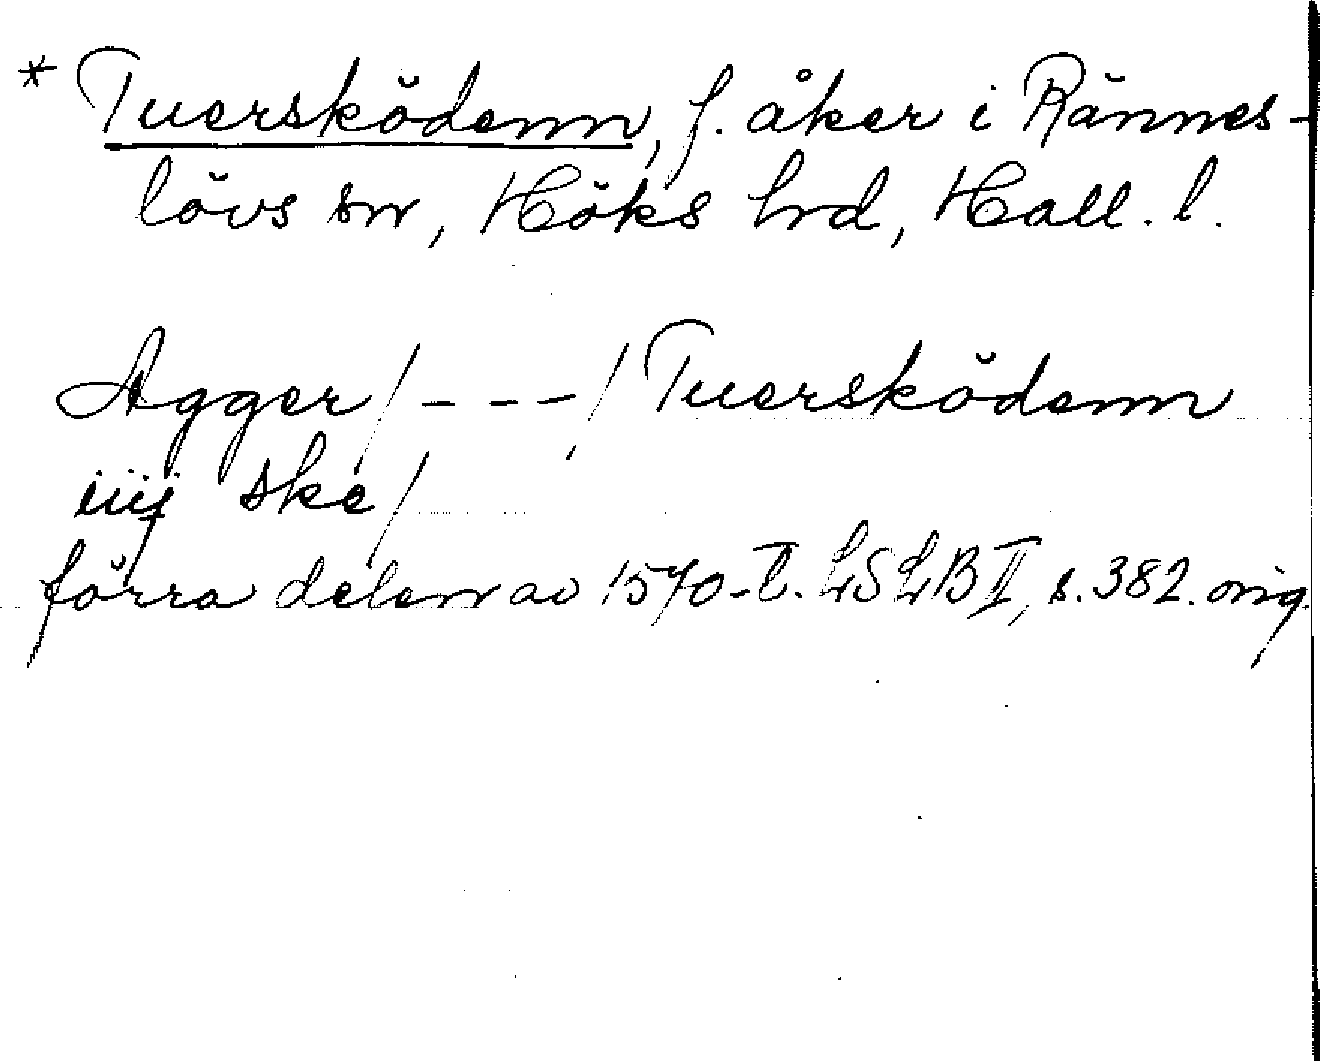 * Tuersködenn, f. åker i Rännes-
lövs sn, Höks hrd, Hall. l.
Agger/---/ Tuersködenn
iiij ske/
förra delen av 1570-t. LSLB II, s. 382. orig.